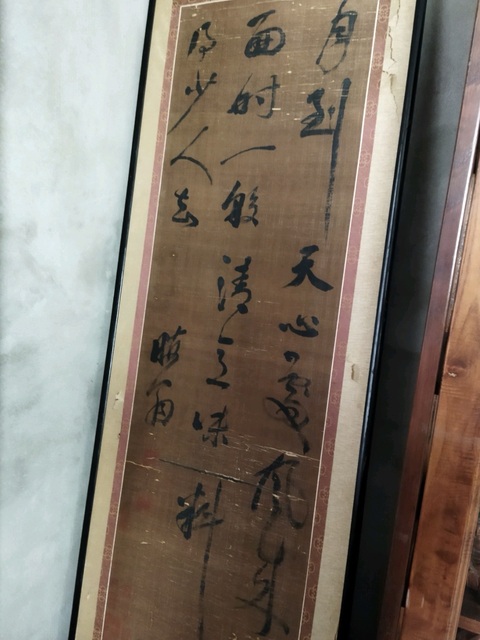 月到天心處風来水
面時一般清意味料
得少人知
晦翁